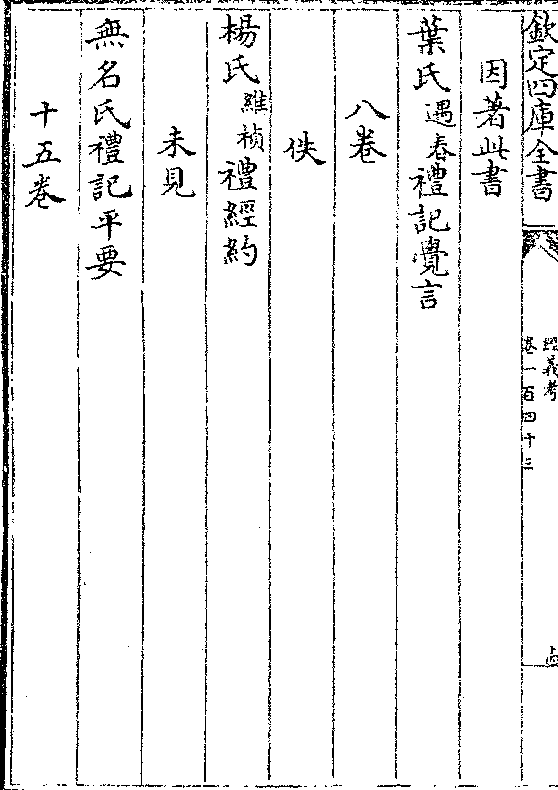 欽定四庫全書
經義考
卷一百四十三
因著此書
葉氏遇春禮記覺言
八卷
佚
楊氏維禎禮經約
未見
無名氏禮記平要
十五卷